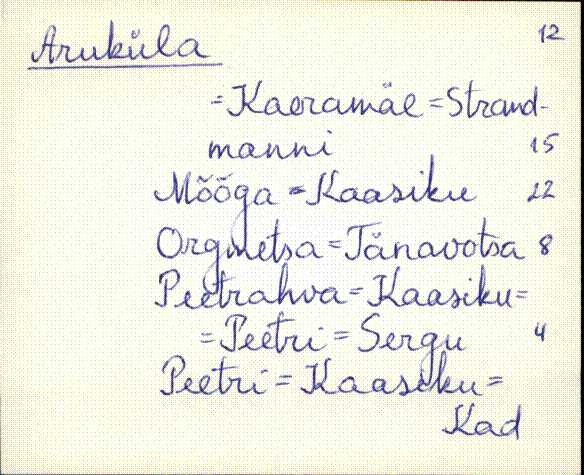 Aruküla 12
=Kaeramäe=Strand-
manni 15
Mõõga=Kaasiku 22
Orgmetsa=Tänavotsa 8
Peetrahva=Kaasiku=
=Peetri=Sergu 4
Peetri=Kaasiku=
Kad